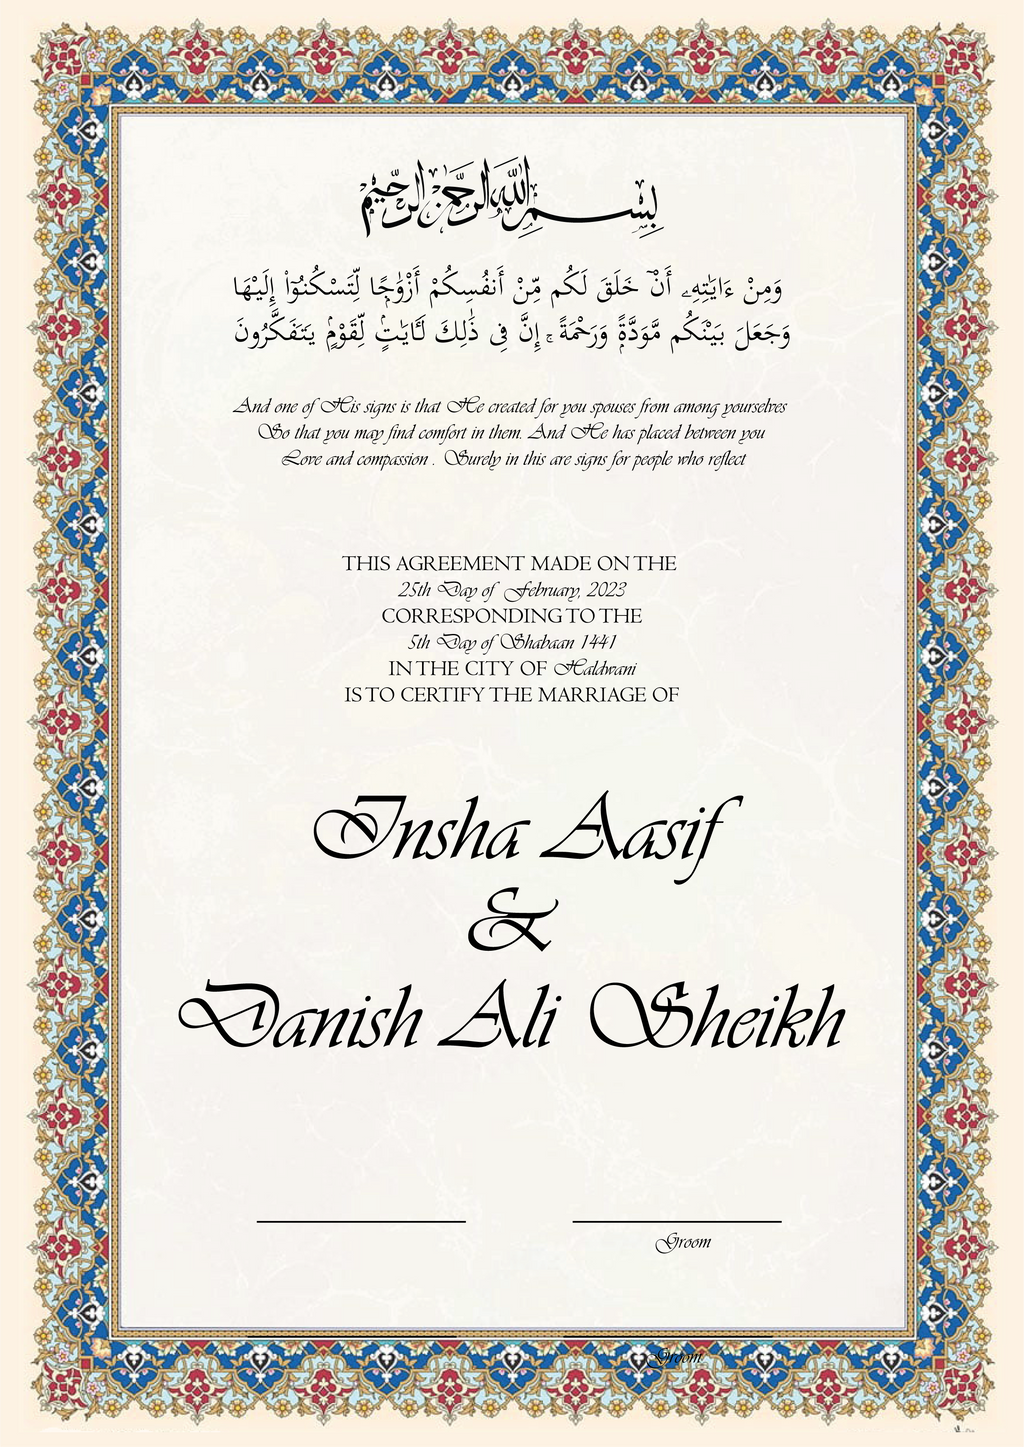 بِسْمِ اللَّهِ الرَّحْمَٰنِ الرَّحِيمِ
وَمِنْ ءَايَٰتِهِۦٓ أَنْ خَلَقَ لَكُم مِّنْ أَنفُسِكُمْ أَزْوَٰجًا لِّتَسْكُنُوٓا۟ إِلَيْهَا
وَجَعَلَ بَيْنَكُم مَّوَدَّةً وَرَحْمَةً ۚ إِنَّ فِى ذَٰلِكَ لَـَٔايَٰتٍ لِّقَوْمٍ يَتَفَكَّرُونَ
And one of His signs is that He created for you spouses from among yourselves
So that you may find comfort in them. And He has placed between you
Love and compassion . Surely in this are signs for people who reflect
THIS AGREEMENT MADE ON THE
25th Day of February, 2023
CORRESPONDING TO THE
5th Day of Shabaan 1441
IN THE CITY OF Haldwani
IS TO CERTIFY THE MARRIAGE OF
Insha Aasif
&
Danish Ali Sheikh
Groom
Groom